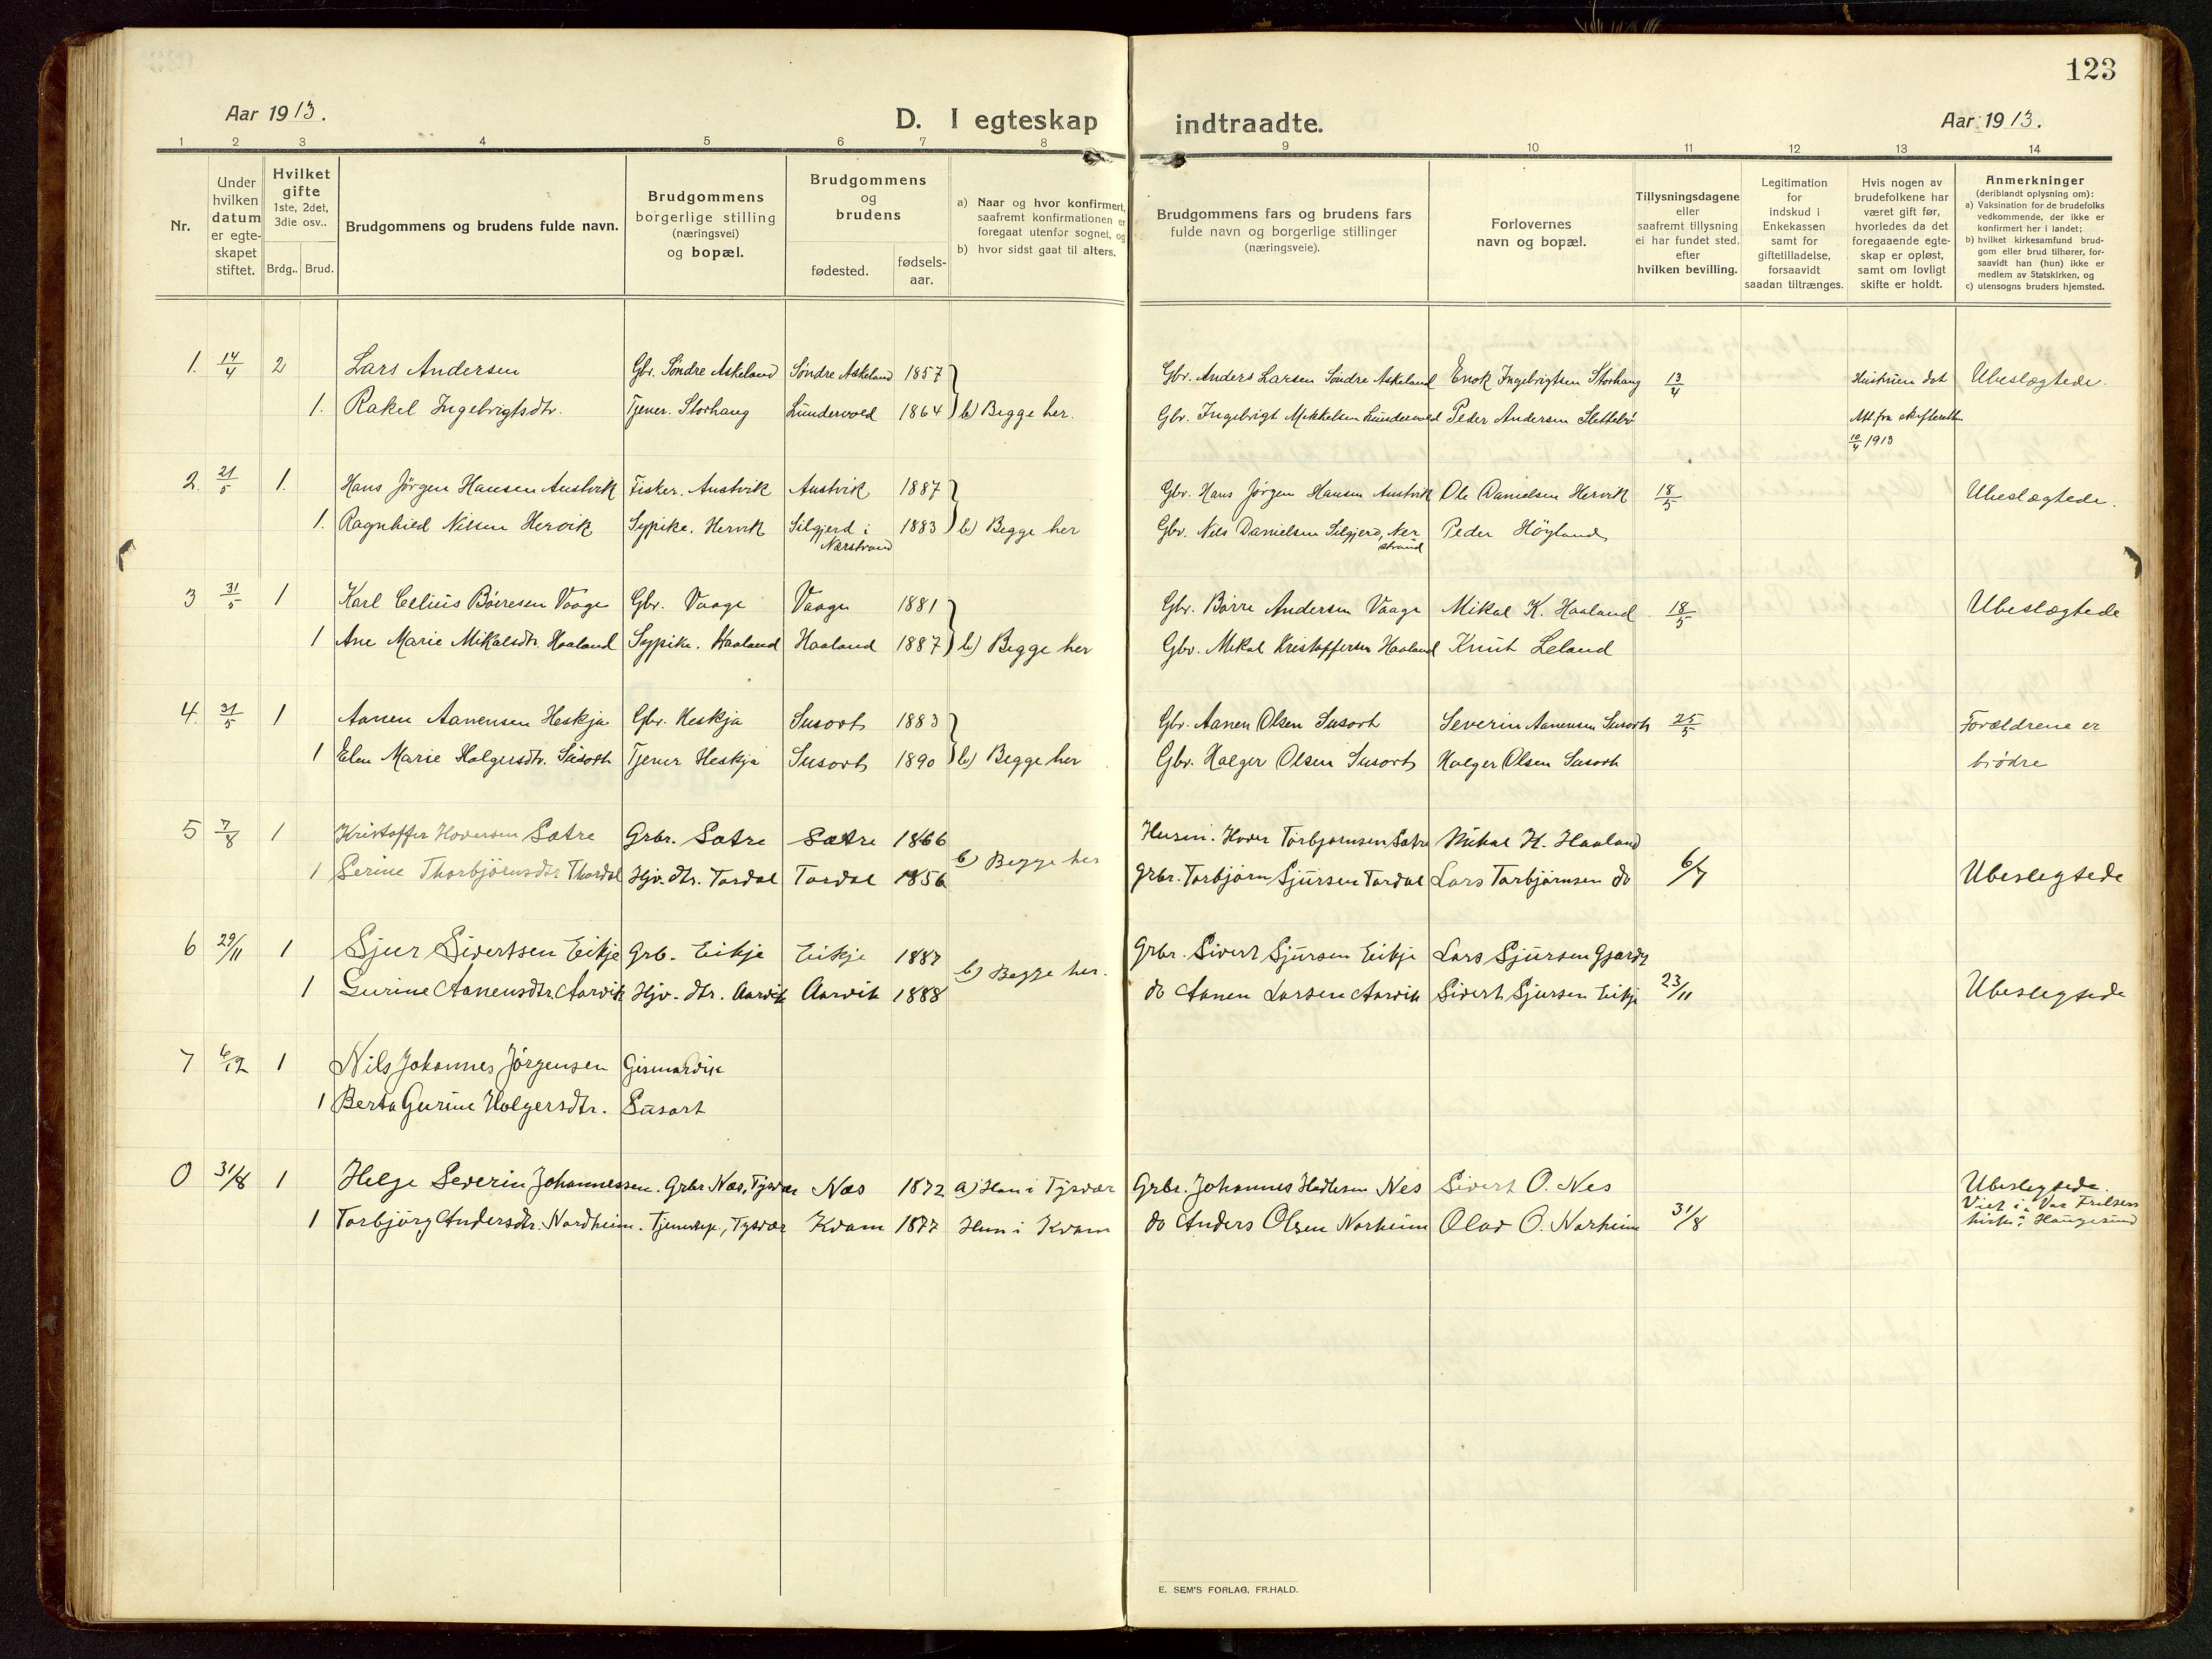 123
Aar 1913.
D. I egteskap indtraadte.
Aar 1913.
1 2 3 4 5 6 7 8 9 10 11 12 13 14
Nr.
Under hvilken datum er egte- skapet stiftet.
Hvilket gifte 1ste, 2det, 3die osv..
Brdg.. Brud.
Brudgommens og brudens fulde navn.
Brudgommens borgerlige stilling (næringsvei) og bopæl.
Brudgommens og brudens
fødested.
fødsels- aar.
a) Naar og hvor konfirmert, saafremt konfirmationen er foregaat utenfor sognet, og
b) hvor sidst gaat til alters.
Brudgommens fars og brudens fars fulde navn og borgerlige stillinger (næringsveie).
Forlovernes navn og bopæl.
Tillysningsdagene eller saafremt tillysning ei har fundet sted, efter hvilken bevilling.
Legitimation for indskud i Enkekassen samt for giftetilladelse, forsaavidt saadan tiltrænges.
Hvis nogen av brudefolkene har været gift før, hvorledes da det foregaaende egte- skap er opløst, samt om lovligt skifte er holdt.
Anmerkninger (deriblandt oplysning om):
a) Vaksination for de brudefolks vedkommende, der ikke er konfirmert her i landet;
b) hvilket kirkesamfund brud- gom eller brud tilhører, for- saavidt han (hun) ikke er medlem av Statskirken, og
c) utensogns bruders hjemsted.
1. 14/4 2 Lars Andersen Gbr. Söndre Askeland Söndre Askeland 1857 Gbr. Anders Larsen Söndre Askeland Enok Ingebrigtsen Storhaug 13/4 Hustruen död Ubeslægtede.
1. Rakel Ingebrigtsdtr. Tjener. Storhaug Lundevold 1864 b) Begge her. Gbr. Ingebrigt Mikkelsen Lundevold Peder Andersen Slettebö Att. fra skifteretten
10/4 1913
2. 21/5 1. Hans Jörgen Hansen Austvik Fisker. Austvik Austvik 1887 Gbr. Hans Jörgen Hansen Austvik Ole Danielsen Hervik 18/5 Ubeslægtede.
1. Ragnhild Nilsen Hervik Sypike. Hervik Silgjerd i Nærstrand 1883 b) Begge her Gbr. Nils Danielsen Silgjerd, Nerstrand Peder Höyland
3 31/5 1 Karl Celius Börresen Vaage Gbr. Vaage Vaage 1881 Gbr. Börre Andersen Vaage Mikal K. Haaland 18/5 Ubeslægtede
1 Ane Marie Mikalsdtr. Haaland Sypike. Haaland Haaland 1887 b) Begge her Gbr. Mikal Kristoffersen Haaland Knut Leland
4. 31/5 1 Aanen Aanensen Heskja Gbr. Heskja Susort 1883 Gbr. Aanen Olsen Susort Severin Aanensen Susort 25/5 Forældrene er
1 Elen Marie Holgersdtr. Susort Tjener Heskja Susort 1890 b) Begge her Gbr. Holger Olsen Susort Holger Olsen Susort brödre
5 7/8 1 Kristoffer Hoversen Sætre Grbr. Sætre Sætre 1866 Husm. Hover Torbjørnsen Sætre Mikal K. Haaland
1 Serine Thorbjörnsdtr Thordal Hjv. dtr. Tordal Tordal 1856 b) Begge her Grbr. Torbjörn Sjursen Tordal Lars Torbjörnsen do 6/7 Ubeslegtede
6 29/11 1 Sjur Sivertsen Eikje Grb. Eikje Eikje 1887 Grbr. Sivert Sjursen Eikje Lars Sjursen
1 Gurine Aanensdtr. Aarvik Hjv. dtr. Aarvik Aarvik 1888 b) Begge her. do Aanen Larsen Aarvik Sivert Sjursen Eikje 23/11 Ubeslegtede
7 6/12 1 Nils Johannes Jörgensen Gismarvik
1 Berta Gurine Holgersdtr. Susort
0 31/8 1 Helge Severin Johannessen. Grbr Næs, Tysvær Næs 1872 a) Han i Tysvær Grbr. Johannes Hedlesen Nes Sivert O. Nes Ubeslegtede.
1 Torbjörg Andersdtr. Nordheim. Tjenestepi., Tysvær Kvam 1877 Hun i Kvam do Anders Olsen Norheim Olav O. Norheim 31/8 Viet i Vor Frelsers kirke i Haugesund
E. SEM'S FORLAG, FR.HALD.